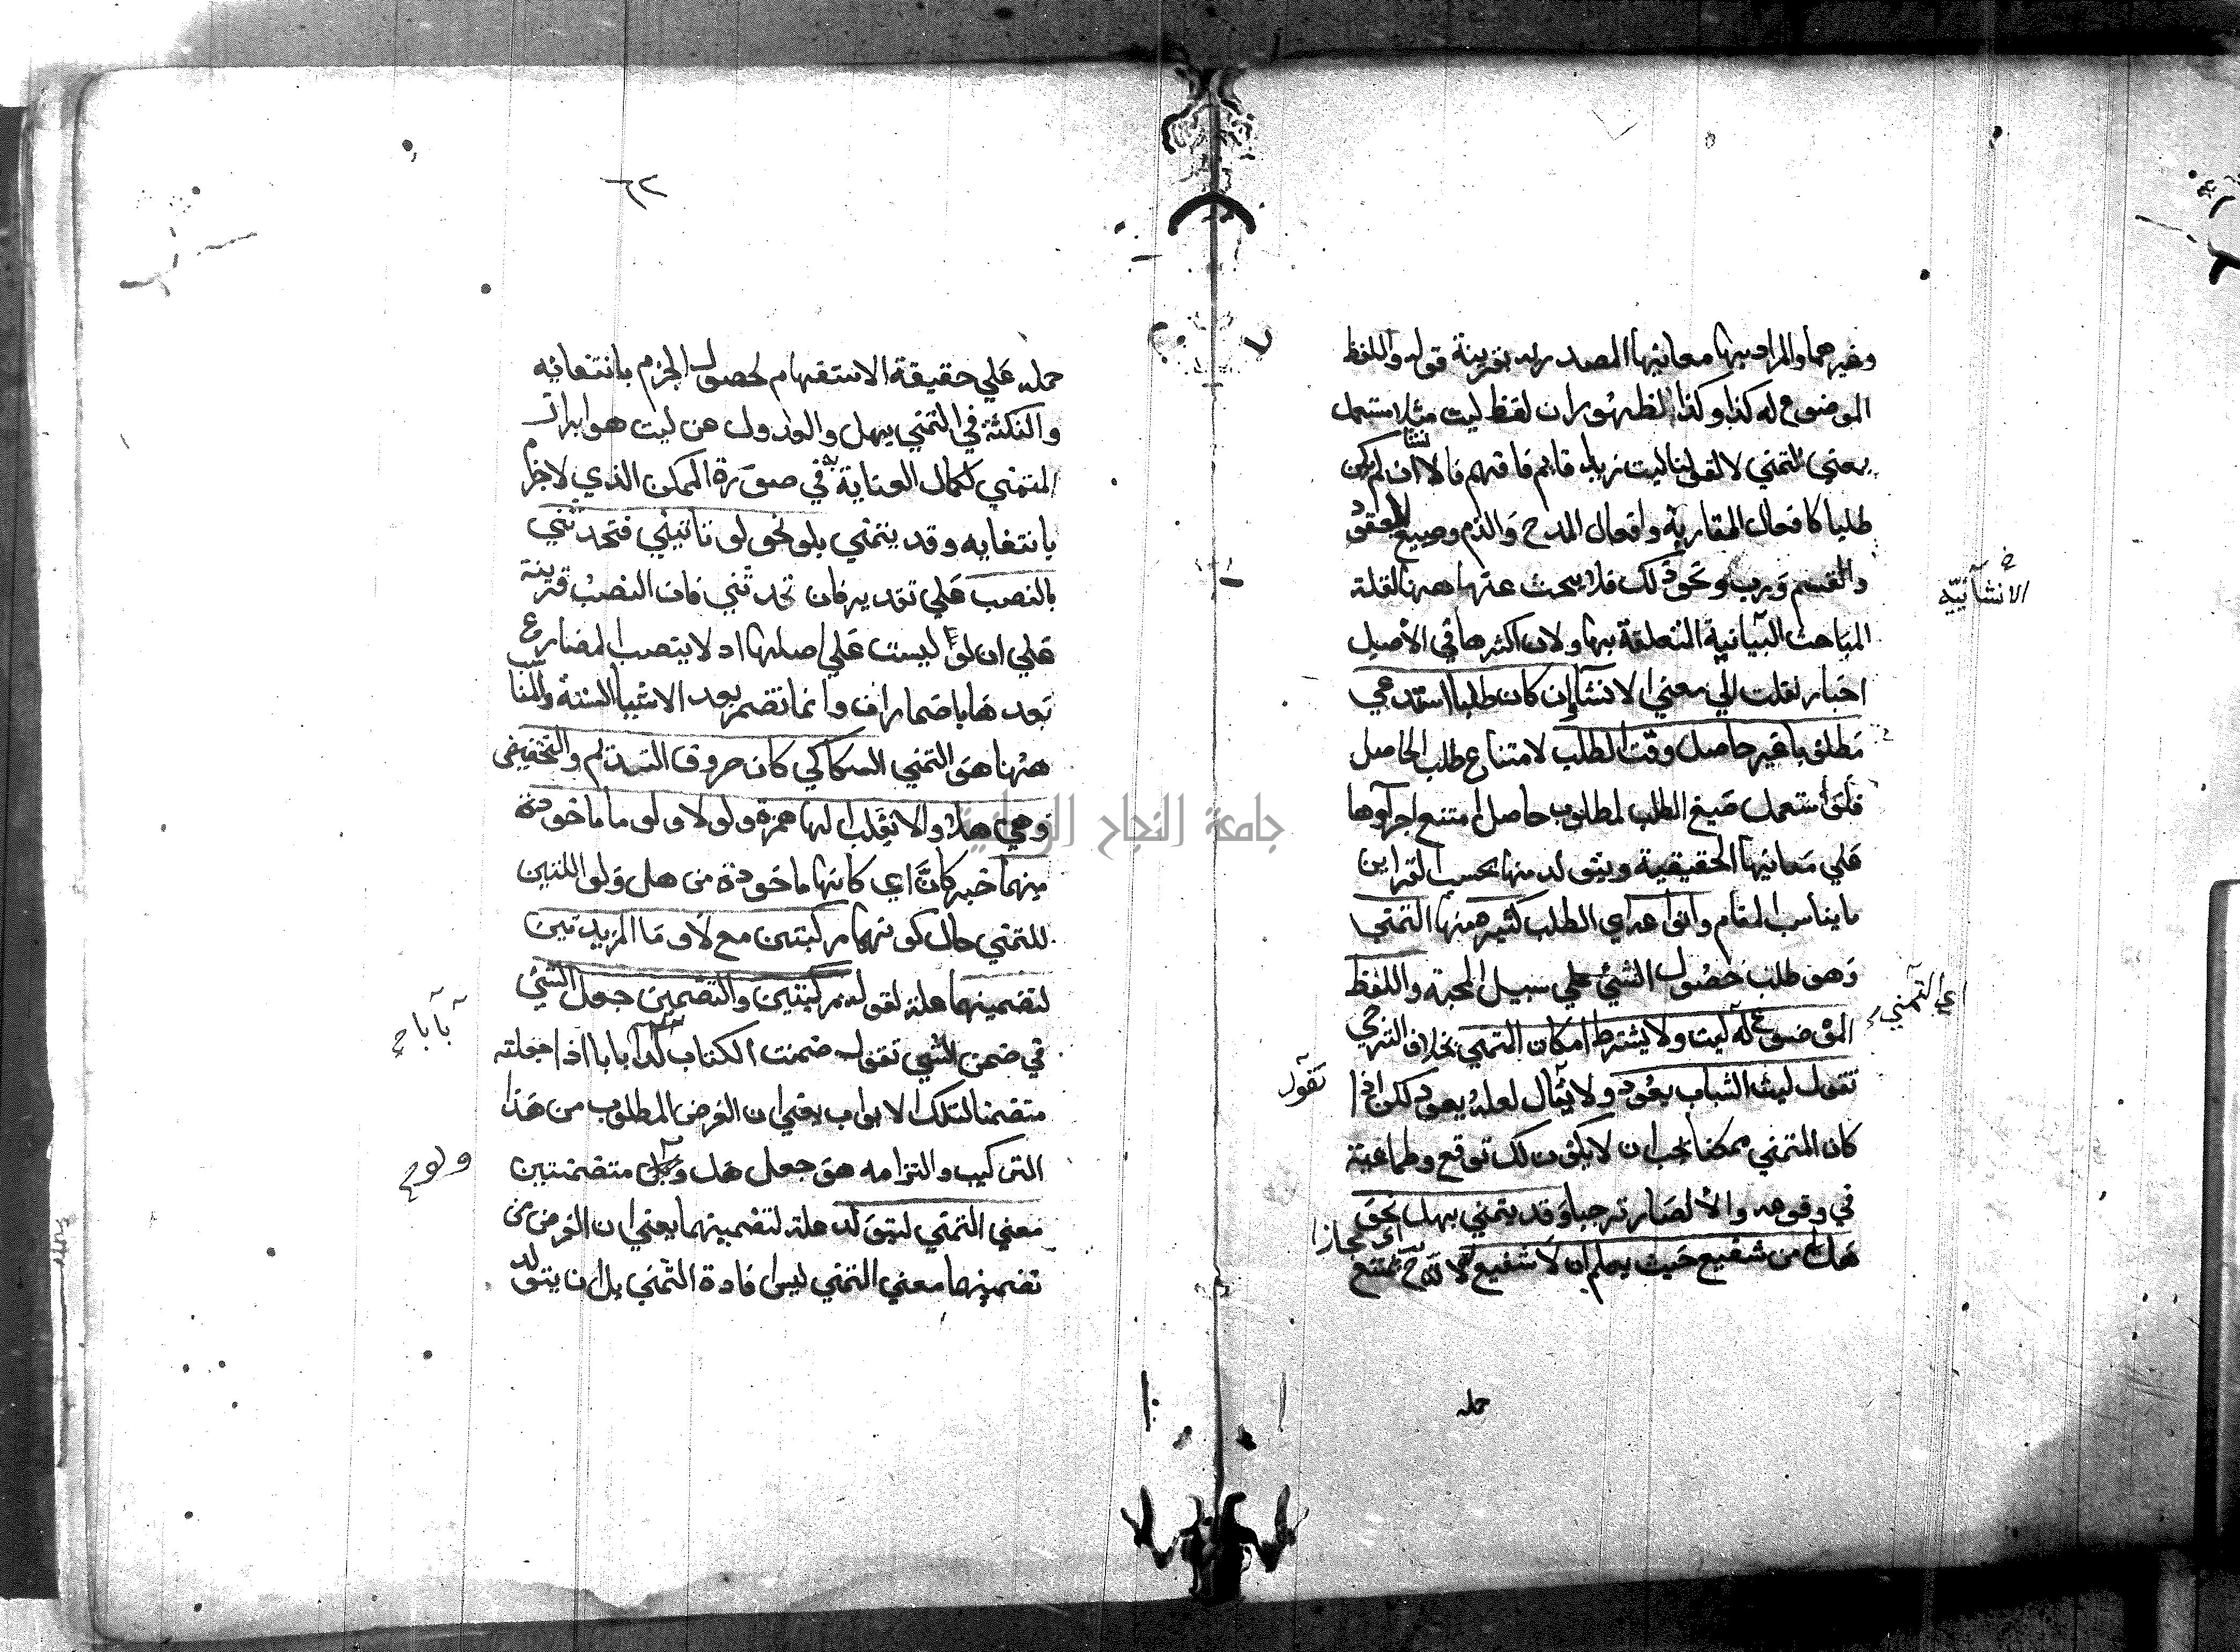 وغيرهما والمراد بها معانيها المصدرية بقرينة قوله واللفظ
الموضوع له كذا وكذا لظهور ان لفظ ليت مثلا مستعمل
بمعني التمني لا لقولنا ليت زيد قايم فافهم فالانشا ان لم يكن
طلبا كافعال المقاربة وافعال المدح والذم وصيغ العقود
والقسم ورب ونحو ذلك فلا يبحث عنها ههنا لقلة
المباحث البيانية المتعلقة بها ولان اكثرها في الاصيل
اخبار نقلت الي معني الانشا ان كان طلبا استدعي
مطلوبا غير حاصل وقت الطلب لامتناع طلب الحاصل
فلو استعمل صيغ الطلب لمطلوب حاصل امتنع اجراوها
علي معانيها الحقيقية ويتولد منها بحسب القراين
ما يناسب المقام وانواعه اي الطلب كثيرة منها التمني
وهو طلب حصول الشيئ علي سبيل المحبة واللفظ
الموضوع له ليت ولا يشترط امكان التمني بخلاف الترجي
تقول ليت الشباب يعود ولا يقال لعله يعود لكن اذا
كان المتمني ممكنا يجب ان لا يكون لك توقع وطماعية
في وقوعه والا لصار ترجيا وقد يتمني بهل نحو
هل من شفيع حيث يعلم ان لا شفيع يمتنع
الانشائية
اي التمني
تقول
اي مجازا
حمله
٦٢
حمله علي حقيقة الاستفهام لحصول الجزم بانتفائه
والنكتة في التمني بهل والعدول عن ليت هو ابراز
المتمني لكمال العناية به في صورة الممكن الذي لا جزم
بانتفايه وقد يتمني بلو نحو لو تاتيني فتحدثني
بالنصب علي تقدير فان تحدثني فان النصب قرينة
علي ان لو ليست علي اصلها اد لا ينصب المضارع
بعدها باضمار ان وانما تضمر بعد الاشيا الستة والمناسب
ههنا هو التمني السكاكي كان حروف التنديم والتخضيض
وهي هلا والا بقلب الها همزة ولولا ولو ما ماخوذة
منهما خبر كان اي كانها ماخوذة من هل ولو اللتين
للتمني حال كونهما مركبتين مع لا وما المزيدتين
لتضمينهما علة لقوله مركبتين والتضمين جعل الشيئ
في ضمن الشيئ تقول ضمنت الكتاب كذا بابا اذا جعلته
متضمنا لتلك الابواب يعني ان الغرض المطلوب من هذا
التركيب والتزامه هو جعل هل ولو متضمنتين
معني التمني ليتولد علة لتضمينهما يعني ان الغرض من
تضمينهما معني التمني ليس افادة التمني بل ان يتولد
بابا
ولو
جامعة النجاح الوطنية